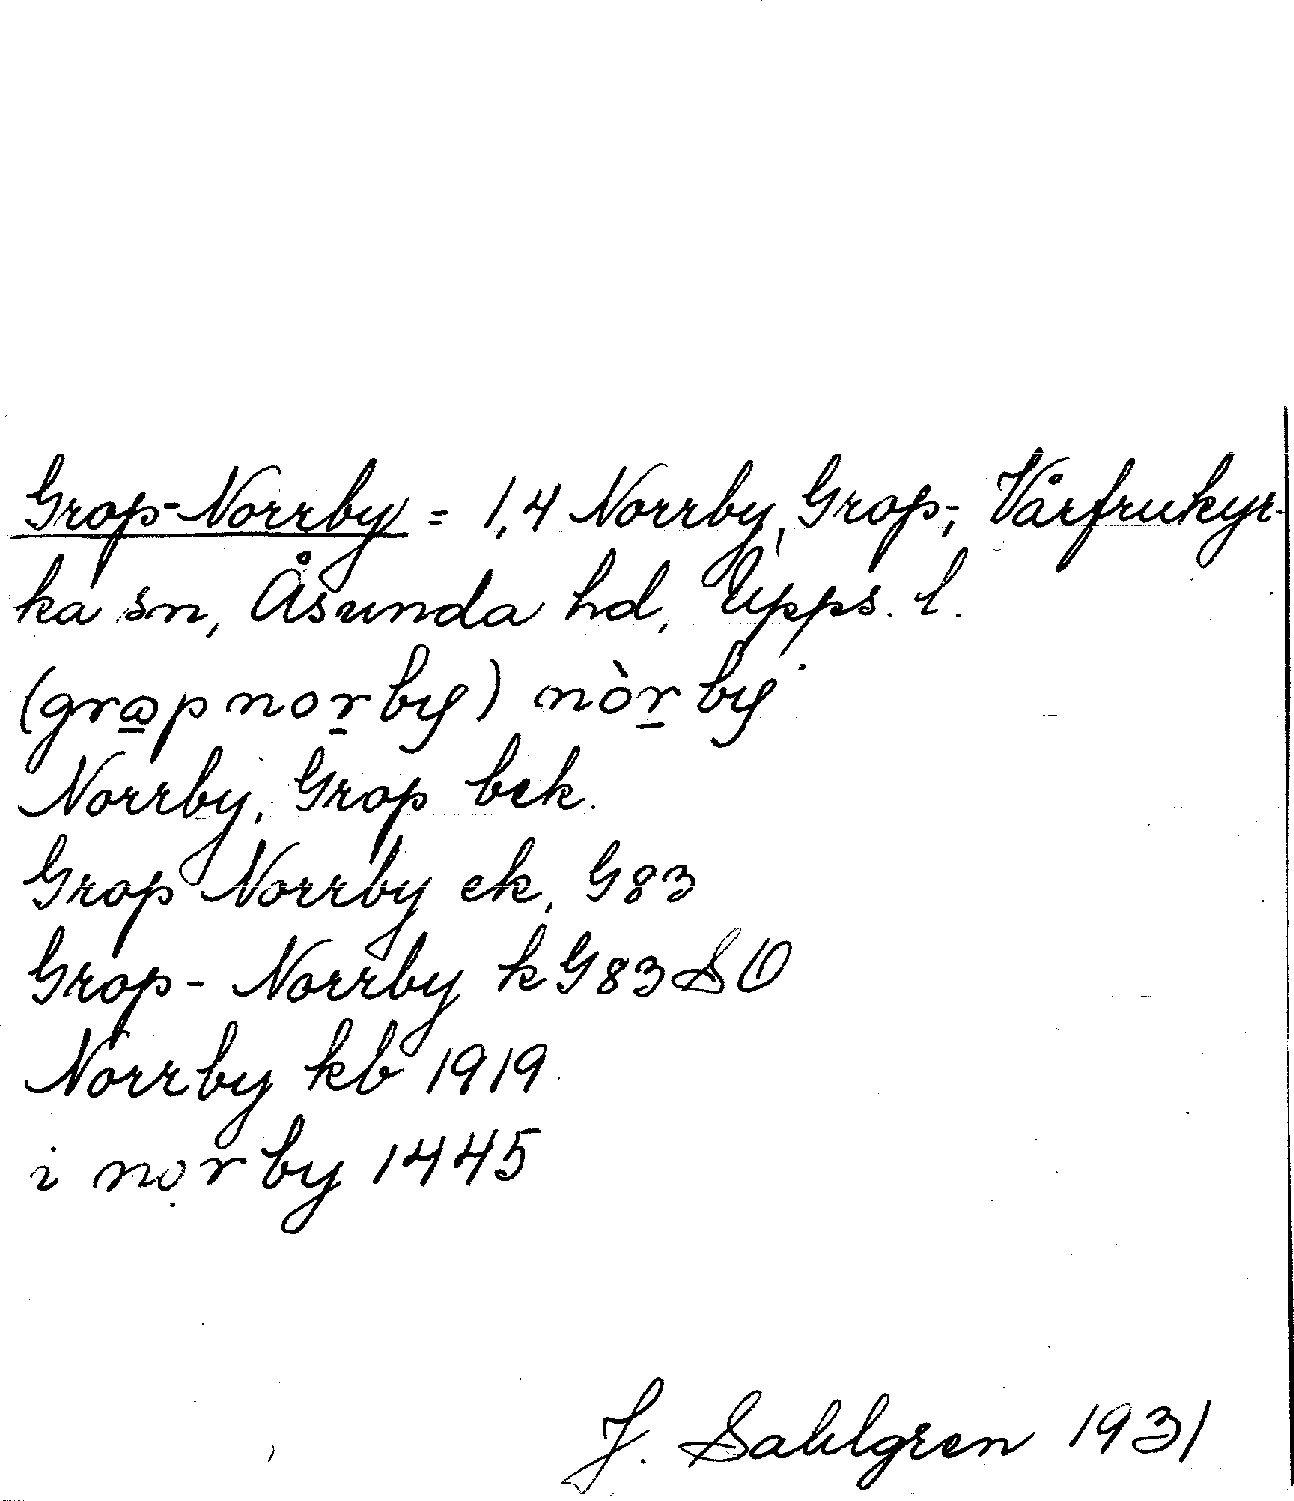 Grop-Norrby = 1,4 Norrby, Grop-, Vårfrukyr-
ka sn, Åsunda hd, Upps. l.
(grω̱pnor̠by) nòr̠by
Norrby, Grop bek.
Grop Norrby ek, G83
Grop- Norrby k G83 SO
Norrby kb 1919
i norby 1445
J. Sahlgren 1931